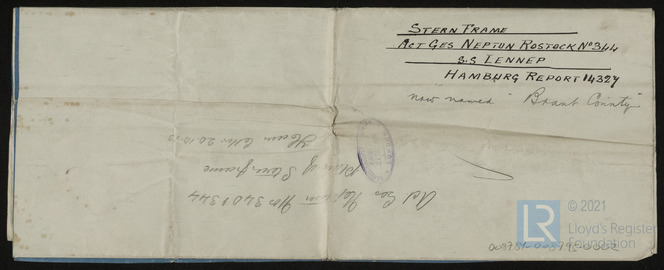 STERN FRAME
ACT GES NEPTUN ROSTOCK Nº 344
S.S LENNEP
HAMBURG REPORT 14327
now named "Brant County"
Act Ges Neptun Nos 340 & 344
Plan of Stern frame
Ham letter 20.10.13
© 2021
LR
Lloyd's Register
Foundation